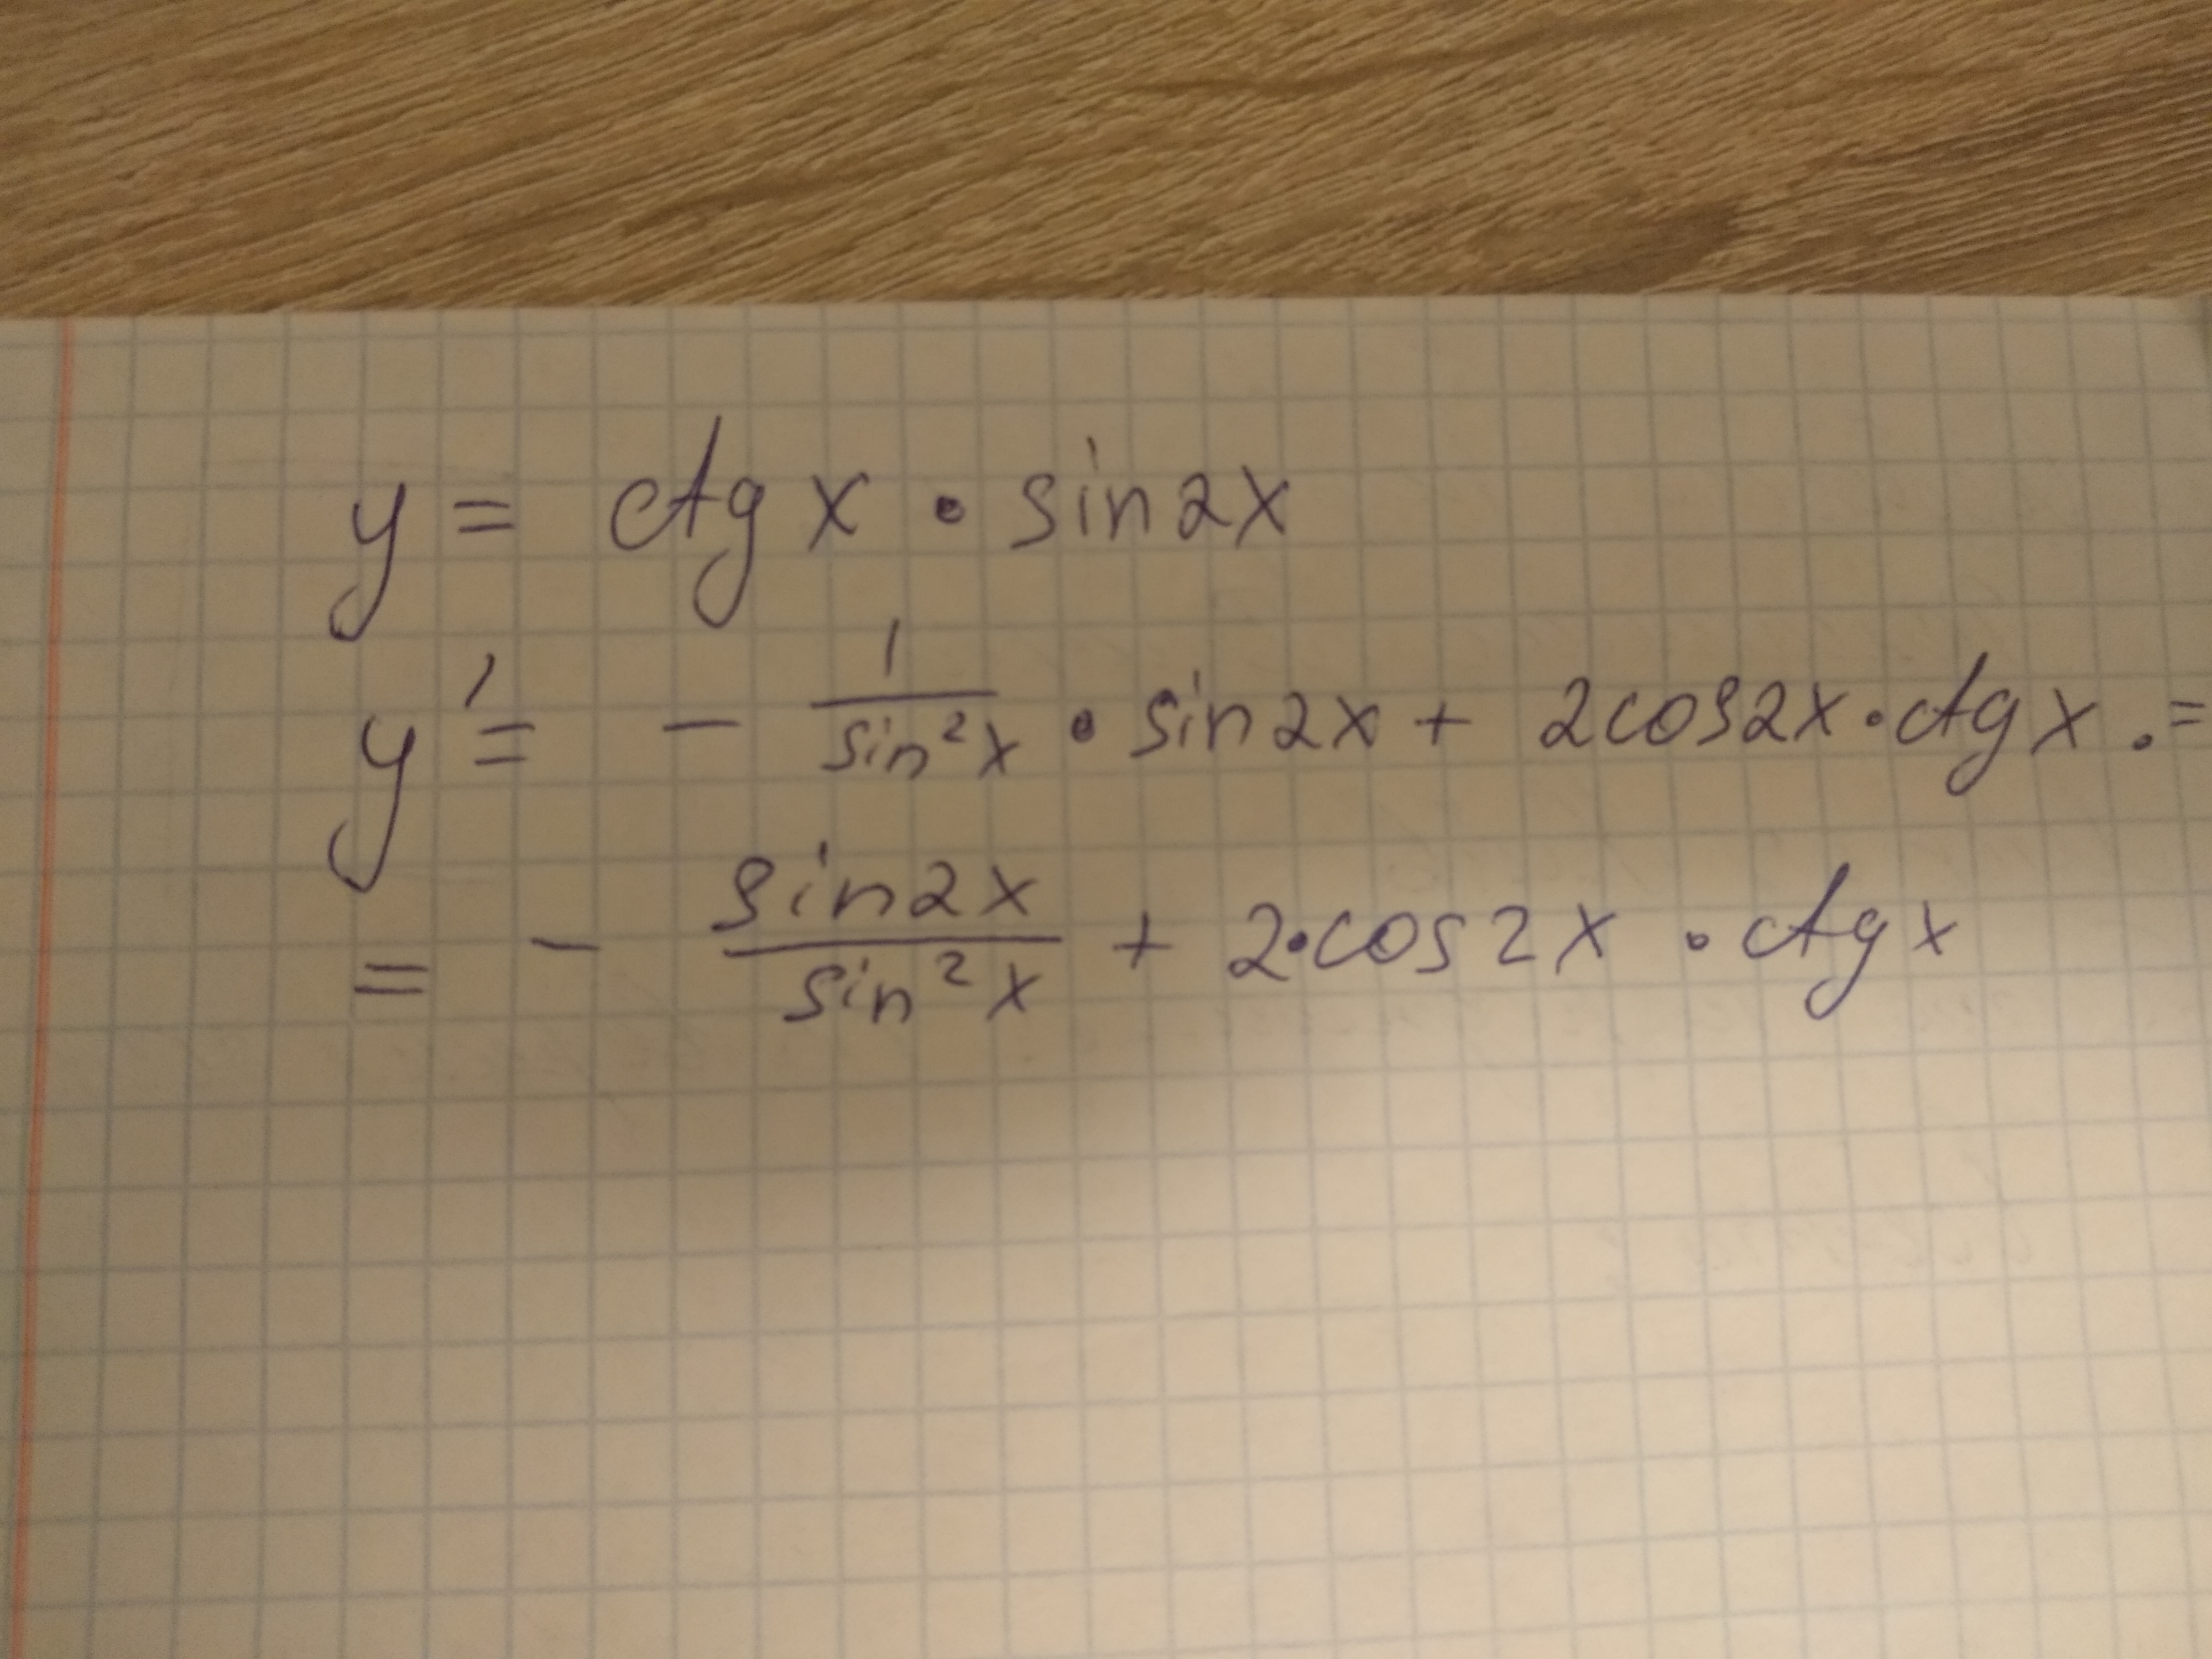 y = ctg x • sin2x
y' = - 1/sin²x • sin2x + 2cos2x · ctg x . =
= - sin2x/sin²x + 2·cos2x · ctg x